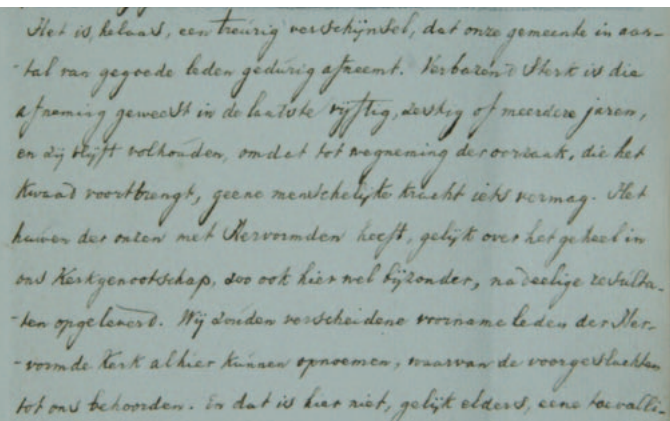 Het is, helaas, een treurig verschijnsel, dat onze gemeente in aan-
-tal van gegoede leden gedurig afneemt. Verbazend sterk is die
afneming geweest in de laatste vijftig, zestig of meerdere jaren,
en zij blijft volhouden, omdat tot wegneming der oorzaak, die het
kwaad voortbrengt, geene menschelijke kracht iets vermag. Het
huwen der onzen met Hervormden heeft, gelijk over het geheel in
ons Kerkgenootschap, zoo ook hier wel bijzonder, nadeelige resulta-
-ten opgeleverd. Wij zouden verscheidene voorname leden der Her-
-vormde Kerk alhier kunnen opnoemen, waarvan de voorgeslachten
tot ons behoorden. En dat is hier niet, gelijk elders, eene toevalli-